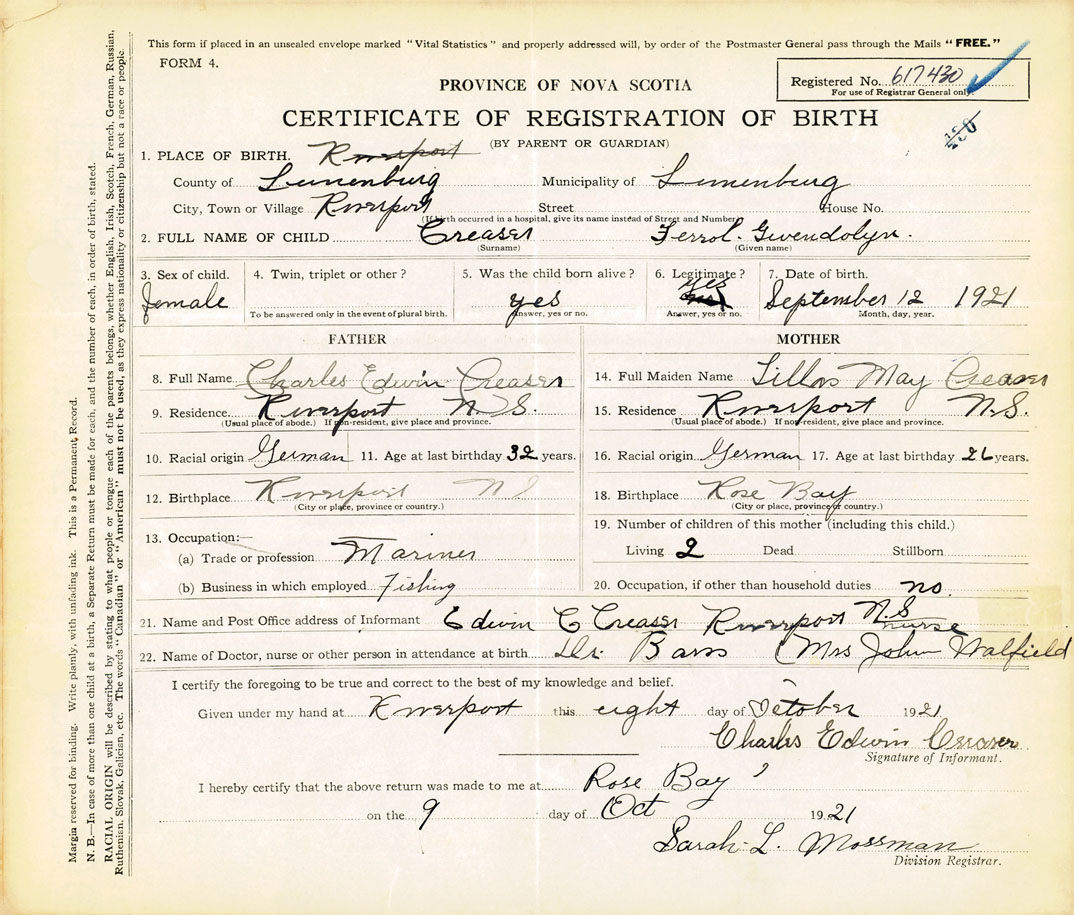 This form if placed in an unsealed envelope marked "Vital Statistics" and properly addressed will, by order of the Postmaster General pass through the Mails "FREE."
FORM 4.
Registered No. 617430
For use of Registrar General only.
PROVINCE OF NOVA SCOTIA
CERTIFICATE OF REGISTRATION OF BIRTH
430
(BY PARENT OR GUARDIAN)
1. PLACE OF BIRTH. Riverport
County of Lunenburg Municipality of Lunenburg
City, Town or Village Riverport Street House No.
(If birth occurred in a hospital, give its name instead of Street and Number)
2. FULL NAME OF CHILD Creaser Ferrol. Gwendolyn.
(Surname) (Given name)
3. Sex of child. 4. Twin, triplet or other? 5. Was the child born alive? 6. Legitimate? 7. Date of birth.
female yes yes September 12 1921
To be answered only in the event of plural birth. Answer, yes or no. Answer, yes or no. Month, day, year.
FATHER MOTHER
8. Full Name Charles Edwin Creaser 14. Full Maiden Name May Creaser
9. Residence Riverport N.S. 15. Residence Riverport N.S.
(Usual place of abode.) If non-resident, give place and province. (Usual place of abode.) If non-resident, give place and province.
10. Racial origin German 11. Age at last birthday 32 years. 16. Racial origin German 17. Age at last birthday 26 years.
12. Birthplace Riverport N S 18. Birthplace Rose Bay
(City or place, province or country.) (City or place, province or country.)
13. Occupation:— 19. Number of children of this mother (including this child.)
(a) Trade or profession Mariner Living 2 Dead Stillborn
(b) Business in which employed Fishing 20. Occupation, if other than household duties no.
21. Name and Post Office address of Informant Edwin C Creaser Riverport N.S
nurse
22. Name of Doctor, nurse or other person in attendance at birth Dr. (Mrs John Walfield
I certify the foregoing to be true and correct to the best of my knowledge and belief.
Given under my hand at Riverport this eight day of October 1921
Charles Edwin Creaser
Signature of Informant.
I hereby certify that the above return was made to me at Rose Bay
on the 9 day of Oct 1921
Sarah L. Mossman
Division Registrar.
Margin reserved for binding. Write plainly, with unfading ink. This is a Permanent Record.
N. B.—In case of more than one child at a birth, a Separate Return must be made for each, and the number of each, in order of birth, stated.
RACIAL ORIGIN will be described by stating to what people or tongue each of the parents belongs, whether English, Irish, Scotch, French, German, Russian,
Ruthenian, Slovak, Galician, etc. The words "Canadian" or "American" must not be used, as they express nationality or citizenship but not a race or people.